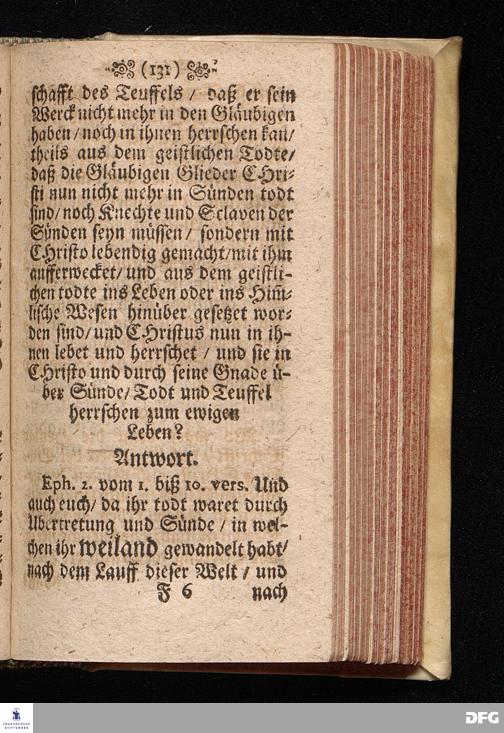 (131)
schafft des Teuffels / daß er sein
Werck nicht mehr in den Gläubigen
haben / noch in ihnen herrschen kan /
theils aus dem geistlichen Todte /
daß die Gläubigen Glieder CHri-
sti nun nicht mehr in Sünden todt
sind / noch Knechte und Sclaven der
Sünden seyn müssen / sondern mit
CHristo lebendig gemacht / mit ihm
aufferwecket / und aus dem geistli-
chen todte ins Leben oder ins Him̃-
lische Wesen hinüber gesetzet wor-
den sind / und CHristus nun in ih-
nen lebet und herrschet / und sie in
CHristo und durch seine Gnade ü-
ber Sünde / Todt und Teuffel
herrschen zum ewigen
Leben?
Antwort.
Eph. 2. vom 1. biß 10. vers. Und
auch euch / da ihr todt waret durch
Ubertretung und Sünde / in wel-
chen ihr weiland gewandelt habt /
nach dem Lauff dieser Welt / und
F 6 nach
FRANCKESCHE
STIFTUNGEN
DFG